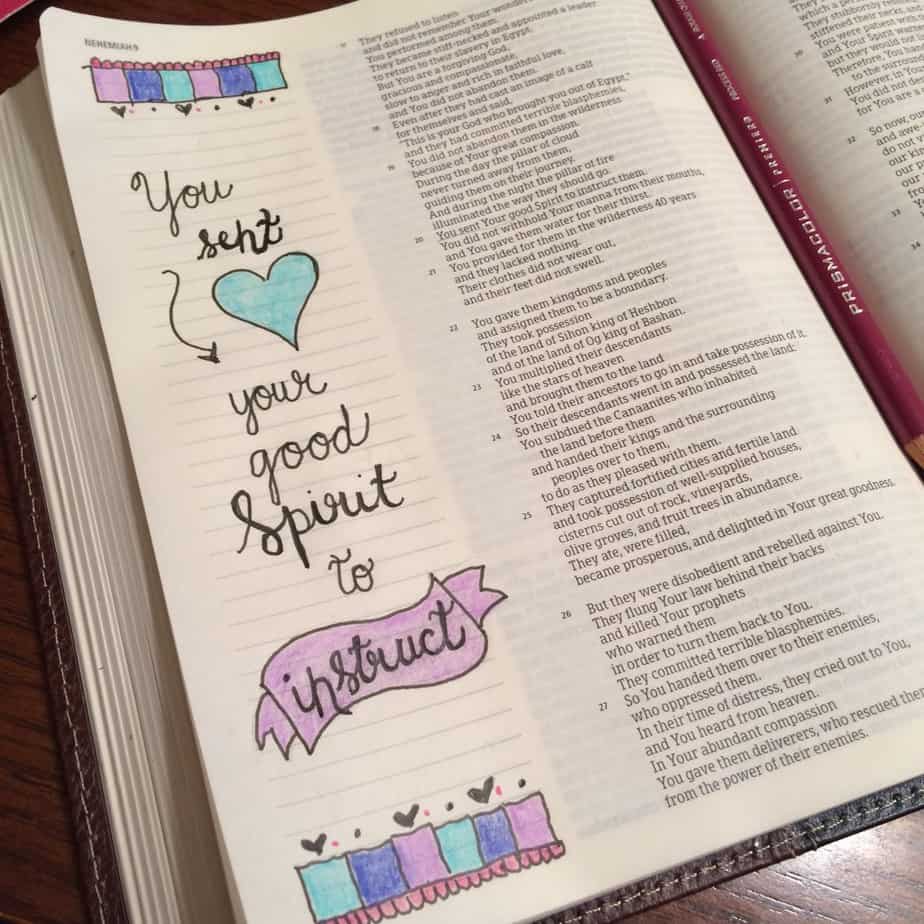 NEHEMIAH 9
You
sent
your
good
Spirit
to
instruct
17 They refused to listen
and did not remember Your wonders
You performed among them.
They became stiff-necked and appointed a leader
to return to their slavery in Egypt.
But You are a forgiving God,
gracious and compassionate,
slow to anger and rich in faithful love,
and You did not abandon them.
18 Even after they had cast an image of a calf
for themselves and said,
“This is your God who brought you out of Egypt,”
and they had committed terrible blasphemies,
19 You did not abandon them in the wilderness
because of Your great compassion.
During the day the pillar of cloud
never turned away from them,
guiding them on their journey.
And during the night the pillar of fire
illuminated the way they should go.
20 You sent Your good Spirit to instruct them.
You did not withhold Your manna from their mouths,
and You gave them water for their thirst.
21 You provided for them in the wilderness 40 years
and they lacked nothing.
Their clothes did not wear out,
and their feet did not swell.
22 You gave them kingdoms and peoples
and assigned them to be a boundary.
They took possession
of the land of Sihon king of Heshbon
and of the land of Og king of Bashan.
23 You multiplied their descendants
like the stars of heaven
and brought them to the land
You told their ancestors to go in and take possession of it.
24 So their descendants went in and possessed the land:
You subdued the Canaanites who inhabited
the land before them
and handed their kings and the surrounding
peoples over to them,
to do as they pleased with them.
25 They captured fortified cities and fertile land
and took possession of well-supplied houses,
cisterns cut out of rock, vineyards,
olive groves, and fruit trees in abundance.
They ate, were filled,
became prosperous, and delighted in Your great goodness.
26 But they were disobedient and rebelled against You.
They flung Your law behind their backs
and killed Your prophets
who warned them
in order to turn them back to You.
They committed terrible blasphemies.
27 So You handed them over to their enemies,
who oppressed them.
In their time of distress, they cried out to You,
and You heard from heaven.
In Your abundant compassion
You gave them deliverers, who rescued them
from the power of their enemies.
PRISMACOLOR | PREMIER
PROCESS RED
They
which a pers
They stubbornly
stiffened their necks, and
30 You were patient
and Your Spirit
but they would not
Therefore, You
to the surroun
31 However, in Yo
You did not d
for You are a
32 So now, our
and awe
do not v
our kin
our
33
34